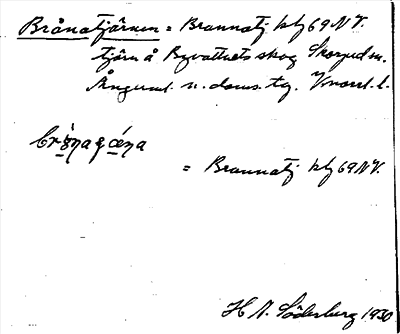 Brånatjärnen = Brannatj kbl 69 N V.
tjärn å Byvattnets skog Skorped sn.
Ångerml. n. doms. tg. Vnorrl. l.
= Brannatj kbl 69 N V.
H N. Söderberg 1930